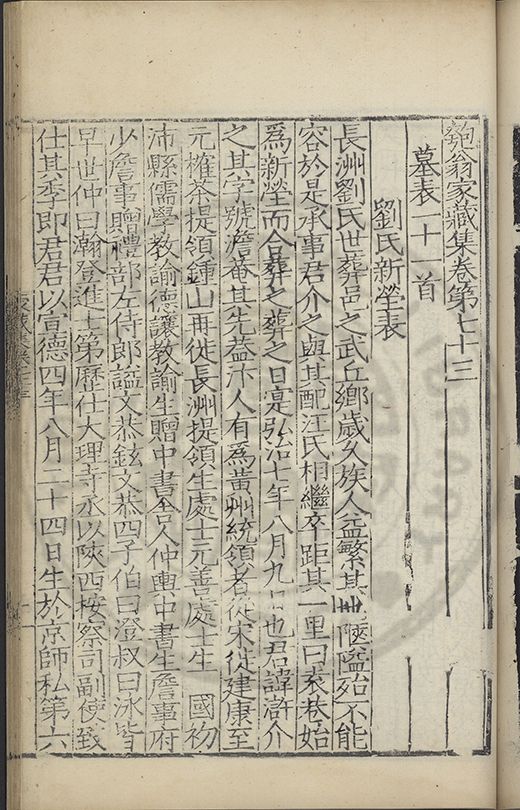 匏翁家藏集卷第七十三
墓表一十一首
劉氏新塋表
長洲劉氏世葬邑之武丘鄉歲久族人益繁其陿隘殆不能
容於是承事君介之與其配汪氏相繼卒距其一里曰袁巷始
爲新塋而合葬之葬之日寔弘治七年八月九日也君諱滸介
之其字號澹菴其先葢汴人有爲黃州統領者從宋徙建康至
元榷茶提領鍾山再徙長洲提領生處士元善處士生 國初
沛縣儒學教諭德讓教諭生贈中書舍人仲輿中書生詹事府
少詹事贈禮部左侍郎謚文恭鉉文恭四子伯曰澄叔曰泳皆
早世仲曰瀚登進士第歷仕大理寺丞以陝西按察司副使致
仕其季即君君以宣德四年八月二十四日生於京師私第六